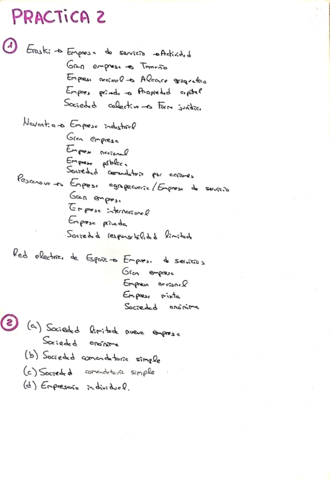 PRACTICA 2
① Eroski → Empresa de servicio → Actividad
Gran empresa → Tamaño
Empresa nacional → Alcance geográfico
Empresa privada → Propiedad capital
Sociedad colectiva → Forma jurídica
Navantia → Empresa industrial
Gran empresa
Empresa nacional
Empresa pública
Sociedad comanditaria por acciones
Pescanova → Empresa agropecuaria / Empresa de servicio
Gran empresa
Empresa internacional
Empresa privada
Sociedad responsabilidad limitada
Red eléctrica de España → Empresa de servicios
Gran empresa
Empresa nacional
Empresa mixta
Sociedad anónima
② (a) Sociedad limitada nueva empresa
Sociedad anónima
(b) Sociedad comanditaria simple
(c) Sociedad comanditaria simple
(d) Empresario individual.